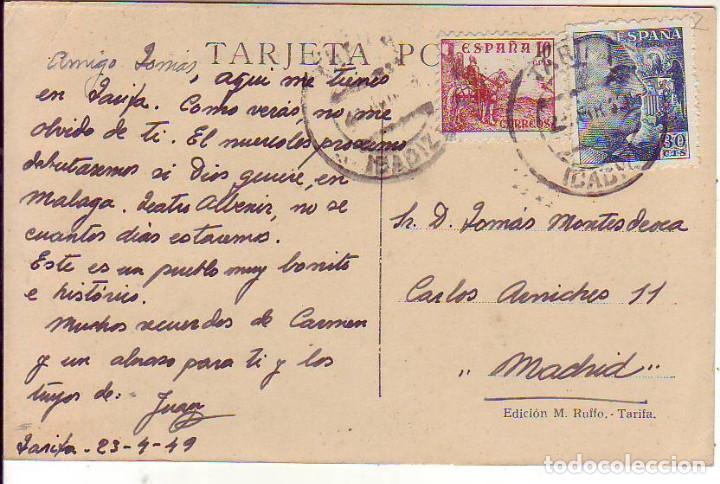 TARJETA PO
Amigo Tomás, aqui me tienes
en Tarifa. Como verás no me
olvido de ti. El miercoles proximo
debutaremos si Dios quiere, en
Malaga. Teatro Albeniz, no se
cuantos dias estaremos.
Este es un pueblo muy bonito
e histórico.
Muchos recuerdos de Carmen
y un abrazo para ti y los
tuyos de: Juan
Tarifa - 23-4-49
ESPAÑA 10 CTS
CORREOS
ESPAÑA
80 CTS
TARI
(CADIZ)
(CADIZ)
Sr. D. Tomas Montesdeoca
Carlos Arniches 11
"Madrid"
Edición M. Ruffo. - Tarifa.
todocoleccion.net